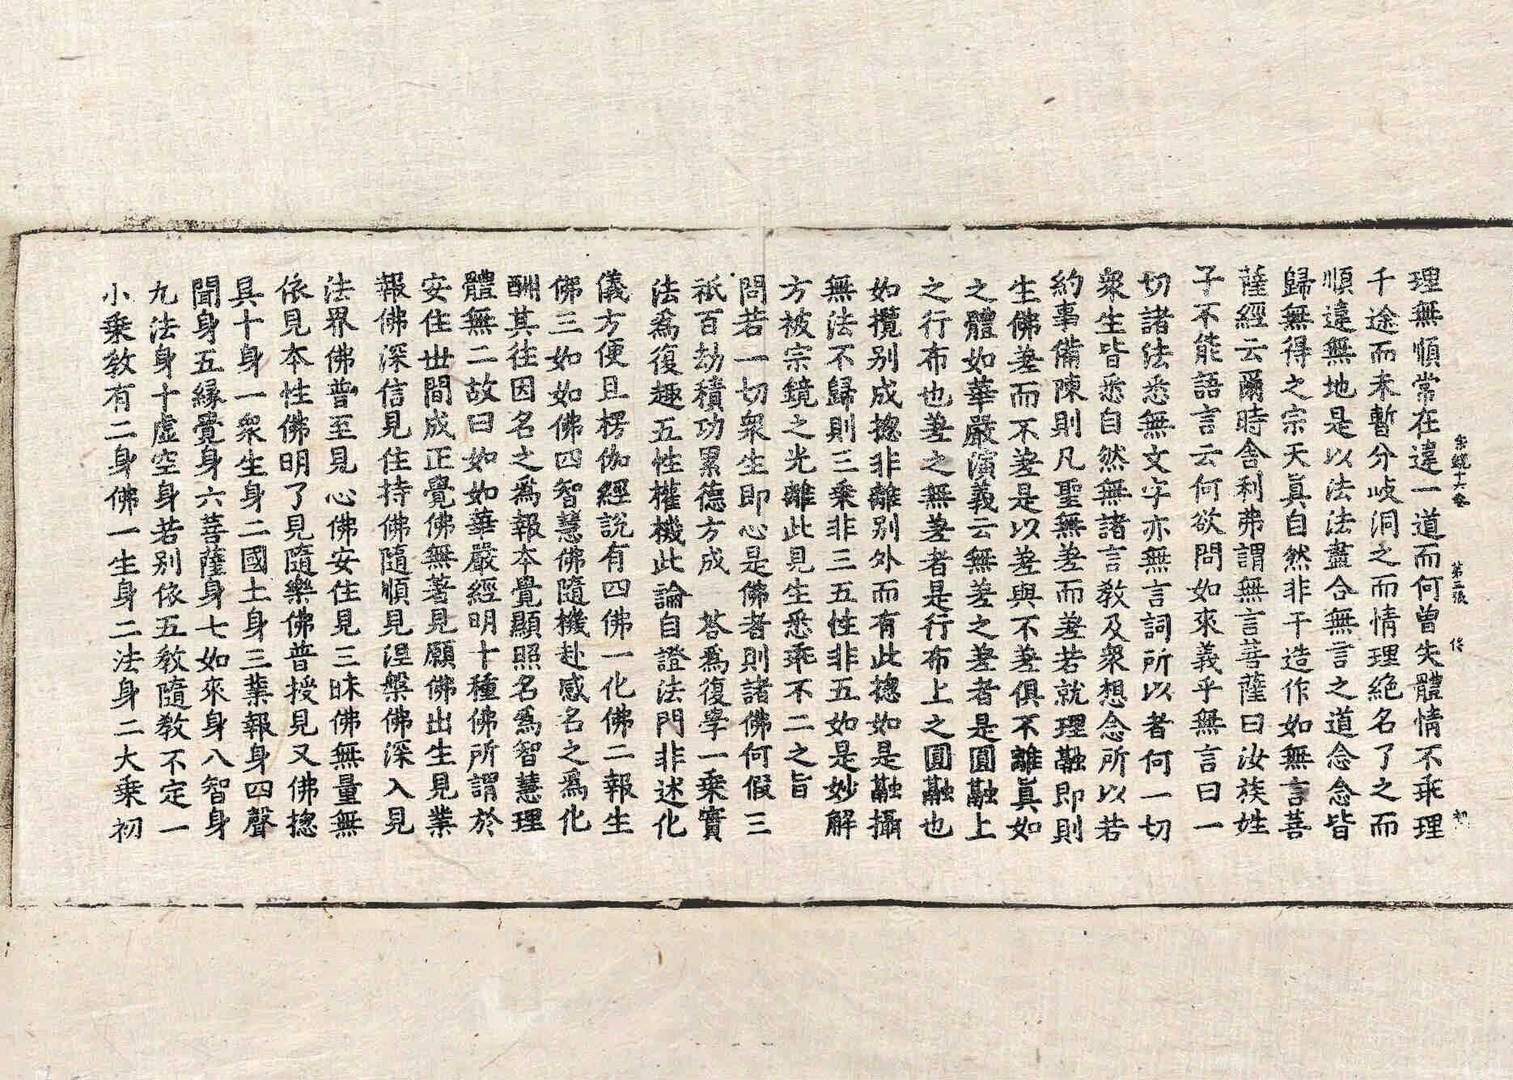 宗鏡十六卷 第三張 俊 初
理無順常在違一道而何曾失體情不乖理
千途而未暫分岐洞之而情理絶名了之而
順違無地是以法法盡合無言之道念念皆
歸無得之宗天眞自然非干造作如無言菩
薩經云爾時舍利弗謂無言菩薩曰汝族姓
子不能語言云何欲問如來義乎無言曰一
切諸法悉無文字亦無言詞所以者何一切
衆生皆悉自然無諸言教及衆想念所以若
約事備陳則凡聖無差而差若就理融即則
生佛差而不差是以差與不差俱不離眞如
之體如華嚴演義云無差之差者是圓融上
之行布也差之無差者是行布上之圓融也
如攬别成揔非離别外而有此揔如是融攝
無法不歸則三乘非三五性非五如是妙解
方被宗鏡之光離此見生悉乖不二之旨
問若一切衆生即心是佛者則諸佛何假三
祇百劫積功累德方成 荅爲復學一乘實
法爲復趣五性權機此論自證法門非述化
儀方便且楞伽經說有四佛一化佛二報生
佛三如如佛四智慧佛隨機赴感名之爲化
酬其往因名之爲報本覺顯照名爲智慧理
體無二故曰如如華嚴經明十種佛所謂於
安住世間成正覺佛無著見願佛出生見業
報佛深信見住持佛隨順見涅槃佛深入見
法界佛普至見心佛安住見三昧佛無量無
依見本性佛明了見隨樂佛普授見又佛揔
具十身一衆生身二國土身三業報身四聲
聞身五縁覺身六菩薩身七如來身八智身
九法身十虛空身若别依五教隨教不定一
小乘教有二身佛一生身二法身二大乘初